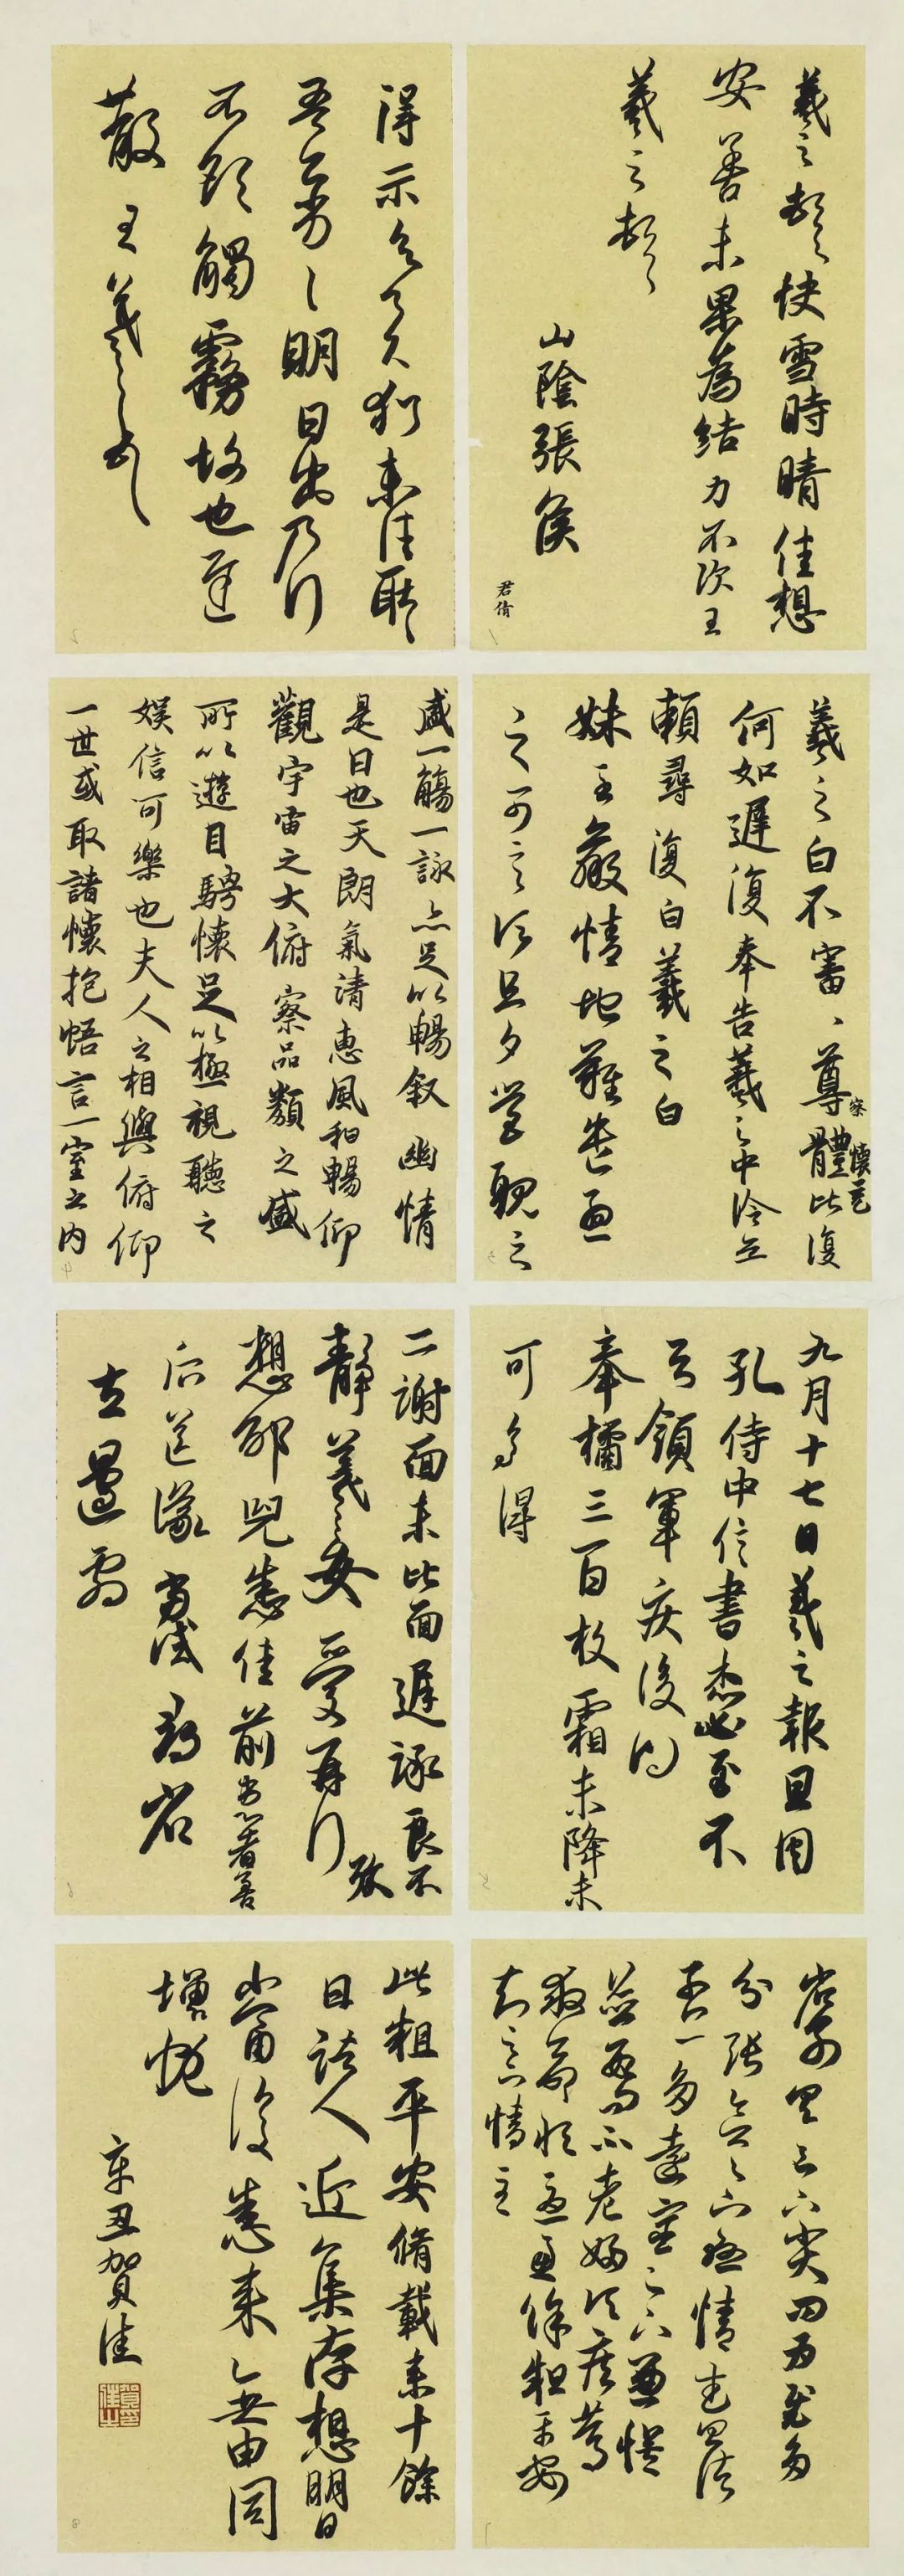 羲之頓首快雪時晴佳想
安善未果為結力不次王
羲之頓首
山陰張侯
君倩
得示知足下猶未佳耿耿
吾亦劣劣明日出乃行
不欲觸霧故也遲
散王羲之頓首
羲之白不審、尊體比復
察 懷充
何如遲復奉告羲之中冷無
賴尋復白羲之白
妹至羸情地難遣憂
之可言須旦夕營視之
盛一觴一詠亦足以暢敘幽情
是日也天朗氣清惠風和暢仰
觀宇宙之大俯察品類之盛
所以遊目騁懷足以極視聽之
娛信可樂也夫人之相與俯仰
一世或取諸懷抱悟言一室之內
九月十七日羲之報且因
孔侍中信書想必至不
知領軍疾後問
奉橘三百枚霜未降未
可多得
二謝面未比面遲詠良不
靜羲之女愛再拜
想邵兒悉佳前患者善
所送議當試尋省
左邊劇
省別具足下小大問為慰多
分張念足下懸情武昌諸
子亦多遠宦足下兼懷
並數問不老婦頃疾篤
救命恒憂慮餘粗平安
知足下情至
此粗平安脩載來十餘
日諸人近集存想明日
當復悉來無由同
增慨
辛丑賀佳